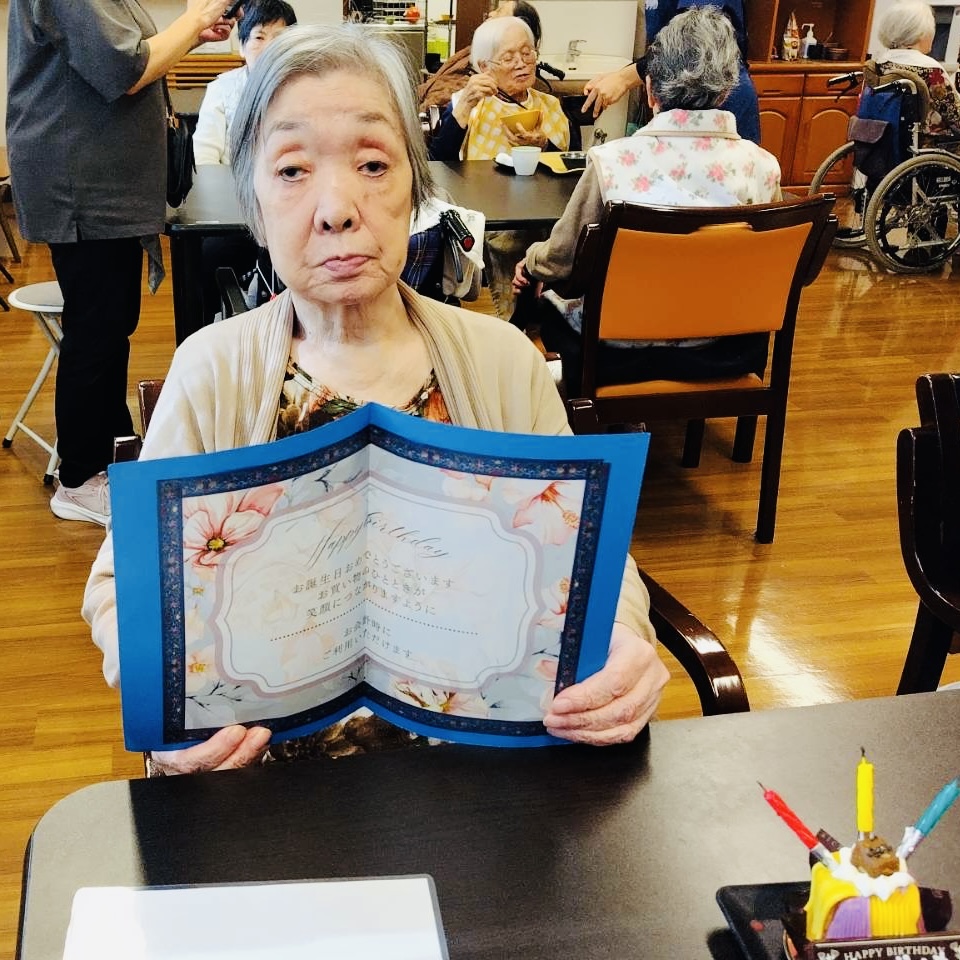 Happy Birthday
お誕生日おめでとうございます
お買い物のひとときが
笑顔につながりますように
お会計時に
ご利用いただけます
HAPPY BIRTHDAY